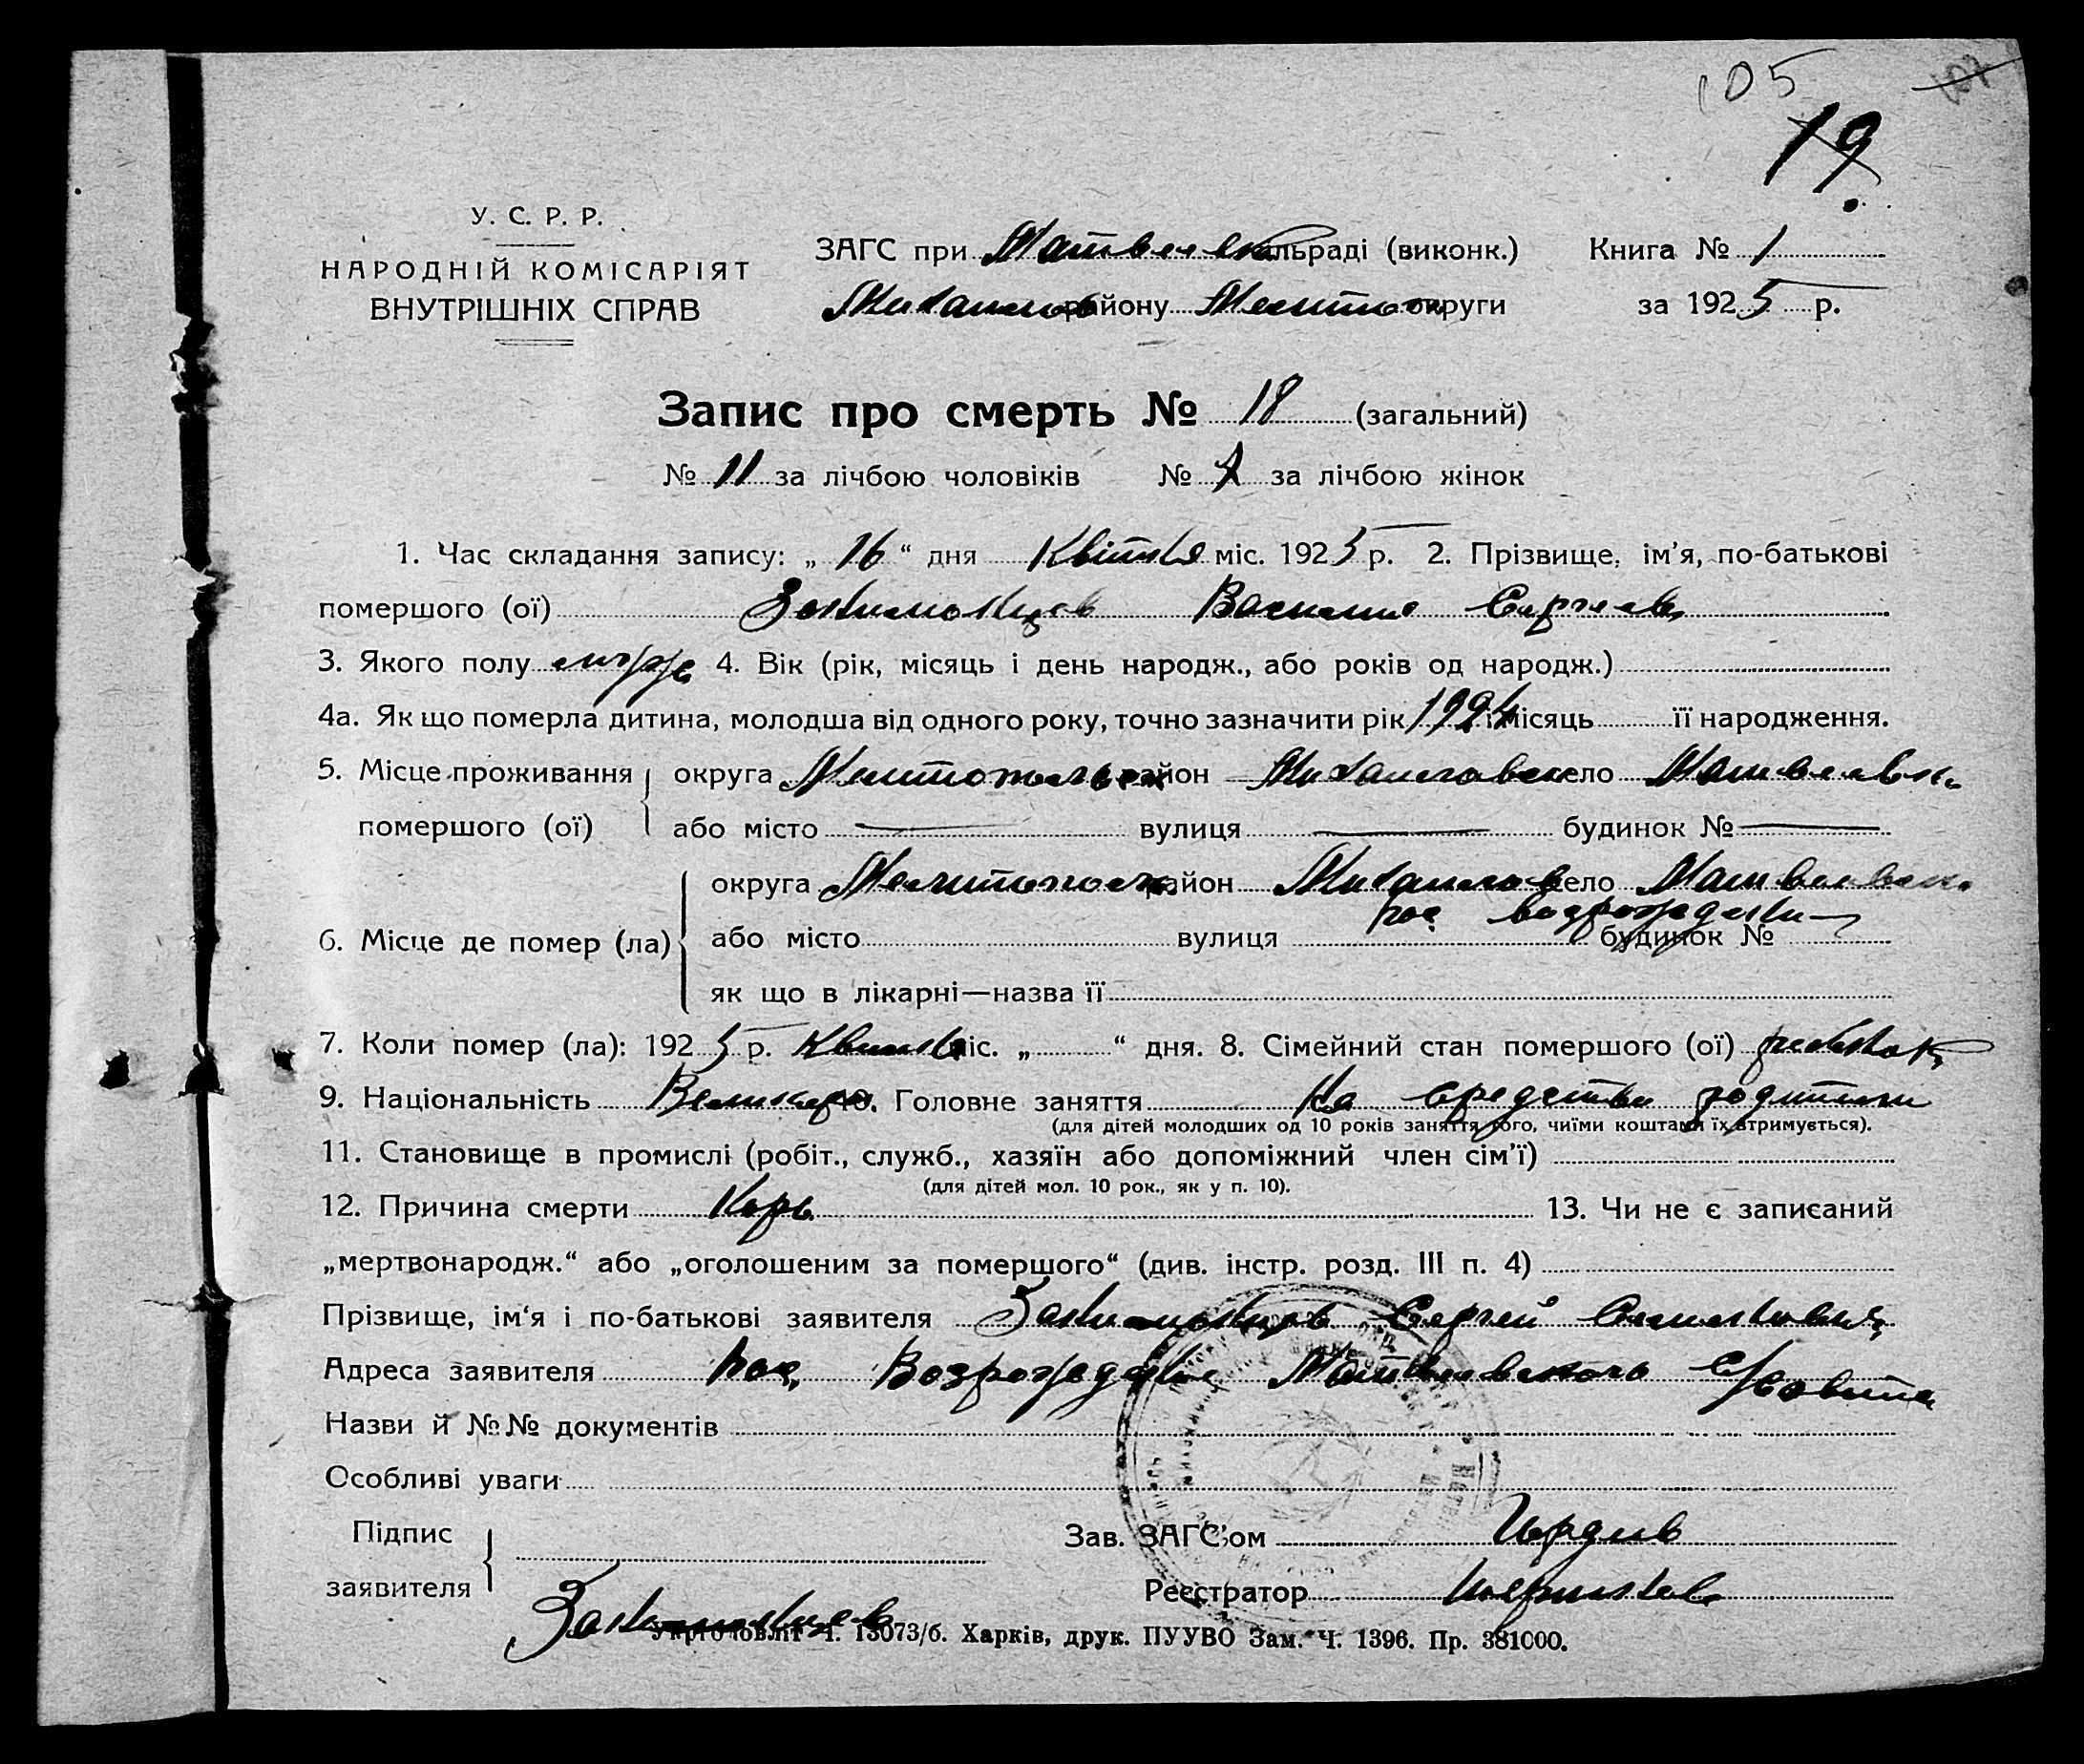 105
19
У. С. Р. Р.
НАРОДНІЙ КОМІСАРІЯТ
ВНУТРІШНІХ СПРАВ
ЗАГС при Матвеевск сільраді (виконк.) Книга № 1
Михайлов району Мелитоп округи за 1925 р.
Запис про смерть № 18 (загальний)
№ 11 за лічбою чоловіків № 7 за лічбою жінок
1. Час складання запису: „ 16 “ дня Квітня міс. 1925 р. 2. Прізвище, ім’я, по-батькові
помершого (ої) Василий Сергеев
3. Якого полу муж 4. Вік (рік, місяць і день народж., або років од народж.)
4а. Як що померла дитина, молодша від одного року, точно зазначити рік 1924 і місяць її народження.
5. Місце проживання помершого (ої) округа Мелитопольск район Михайловск село Матвеевк
або місто — вулиця — будинок № —
6. Місце де помер (ла) округа Мелитопольск район Михайлов село Матвеевск
пос. возрождени
або місто вулиця будинок №
як що в лікарні—назва її
7. Коли помер (ла): 1925 р. Квитня міс. „ “ дня. 8. Сімейний стан помершого (ої) ребенок
9. Національність Великор 10. Головне заняття На средства родители
(для дітей молодших од 10 років заняття того, чиїми коштами їх втримується).
11. Становище в промислі (робіт., служб., хазяїн або допоміжний член сім’ї)
(для дітей мол. 10 рок., як у п. 10).
12. Причина смерти Корь 13. Чи не є записаний
„мертвонародж.“ або „оголошеним за помершого“ (див. інстр. розд. III п. 4)
Прізвище, ім‘я і по-батькові заявителя Сергей
Адреса заявителя пос. Возрождение Матвеевского С/совета
Назви й №№ документів
Особливі уваги
Підпис заявителя
Зав. ЗАГС’ом
Реєстратор
Укрголовліт Ч. 13073/б. Харків, друк. ПУУВО Зам. Ч. 1396. Пр. 381000.